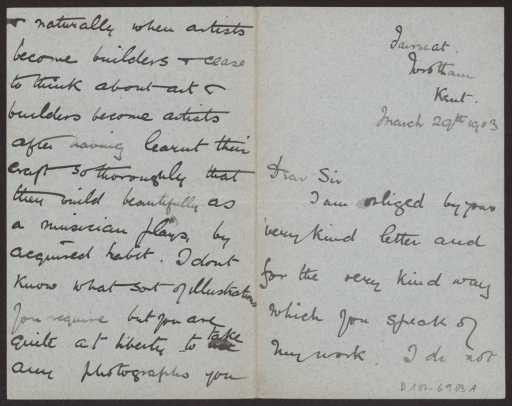 Fairseat.
Wrotham
Kent.
March 29th 1903
Dear Sir
I am obliged by your
very kind letter and
for the very kind way
which you speak of
my work. I do not
& naturally when artists
become builders & cease
to think about art &
builders become artists
after having learnt their
craft so thoroughly that
they build beautifully as
a musician plays, by
acquired habit. I dont
know what sort of illustrations
you require but you are
quite at liberty to take
any photographs you